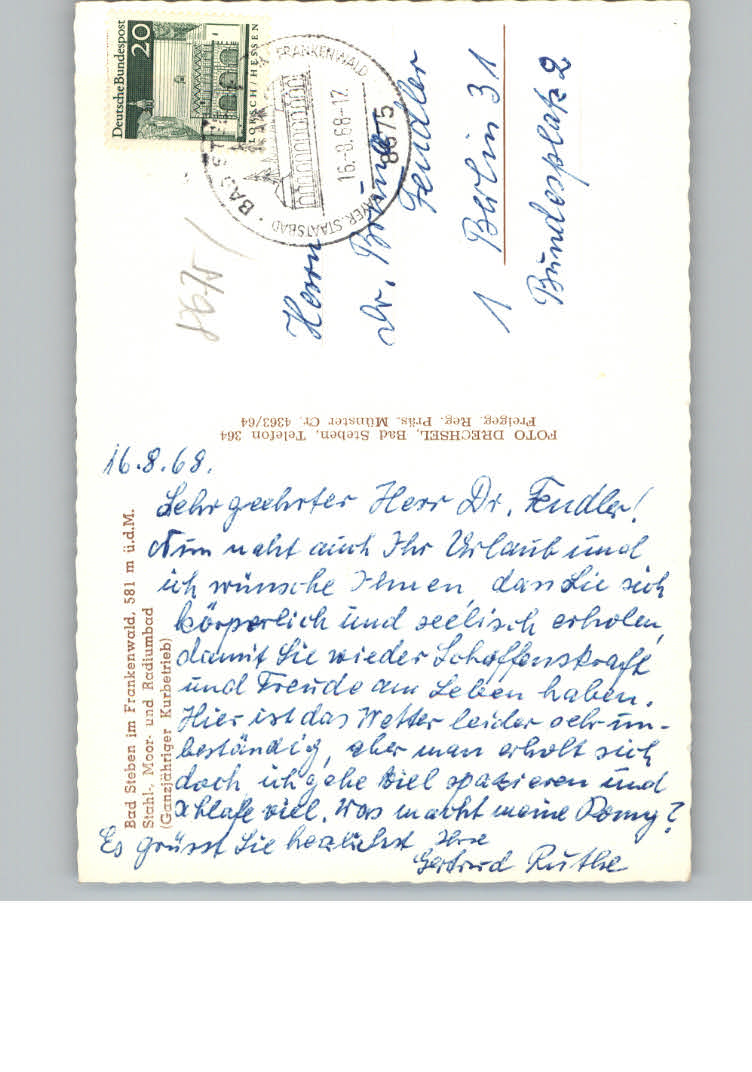 16.8.68.
Sehr geehrter Herr Dr. Fendler!
Nun naht auch Ihr Urlaub und
ich wünsche Ihnen, dass Sie sich
körperlich und seelisch erholen,
damit Sie wieder Schaffenskraft
und Freude am Leben haben.
Hier ist das Wetter leider sehr un-
beständig, aber man erholt sich
doch ich gehe viel spazieren und
schlafe viel. Was macht meine Romy?
Es grüsst Sie herzlichst Ihre
Gertrud Ruthe
Bad Steben im Frankenwald, 581 m ü.d.M.
Stahl-, Moor- und Radiumbad
(Ganzjähriger Kurbetrieb)
FOTO DRECHSEL, Bad Steben, Telefon 364
Freigeg. Reg. Präs. Münster Cr. 4363/64
Herrn
Dr. Bruno
Fendler
1 Berlin 31
Bundesplatz 2
Deutsche Bundespost
20
LORSCH/HESSEN
BAD STEBEN
FRANKENWALD
STAATSBAD
16.-8.68-17
8675
8675